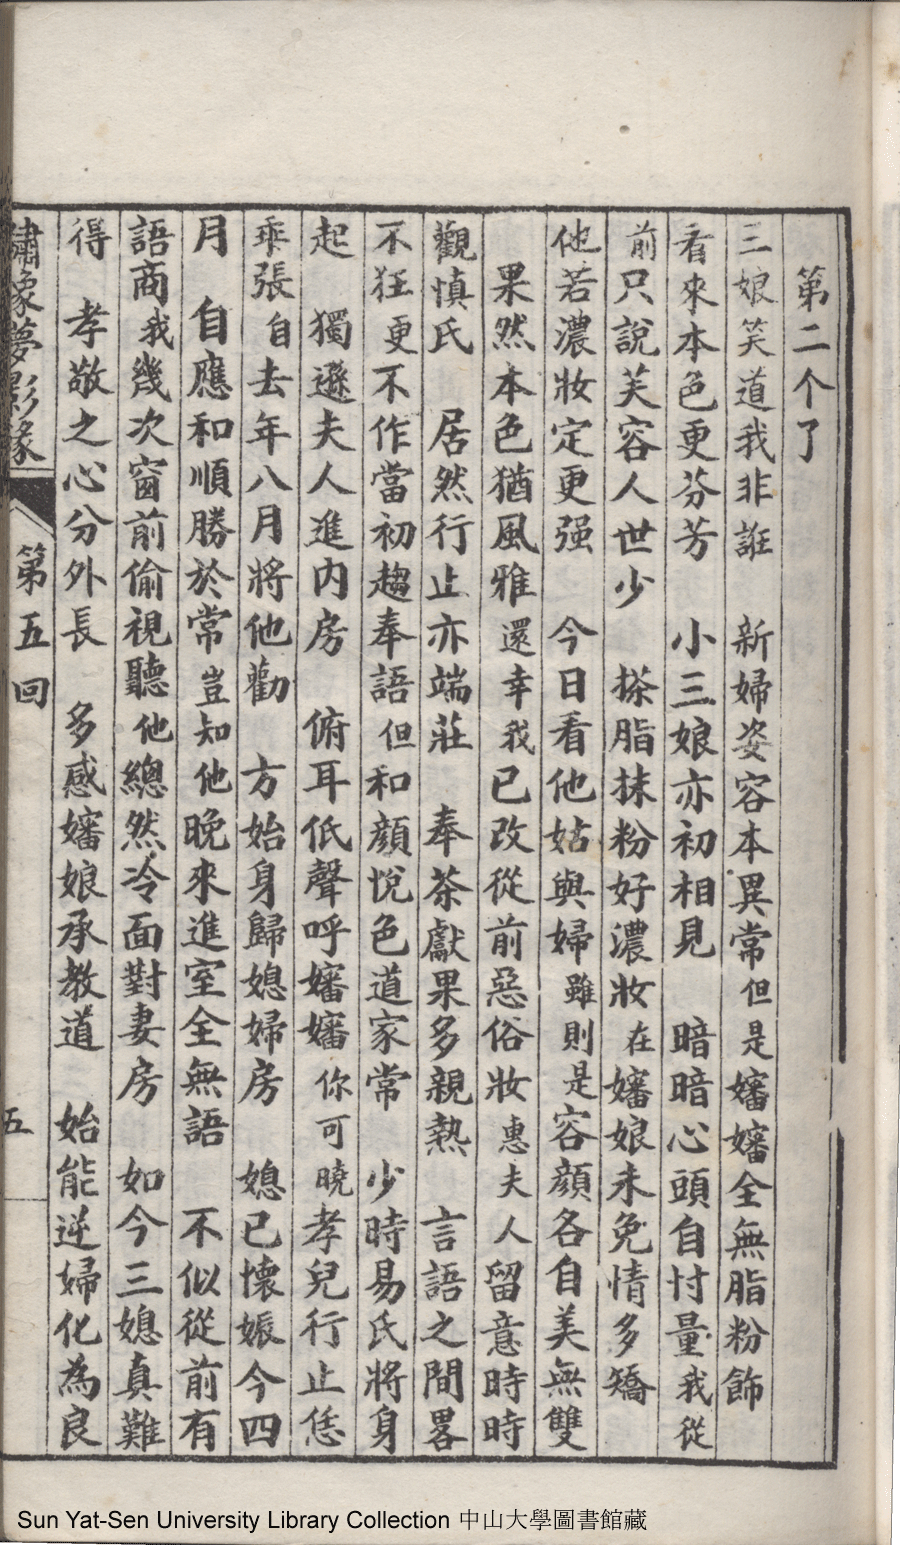 第二个了
三娘笑道我非誑　新婦姿容本異常但是嬸嬸全無脂粉飾
看來本色更芬芳　小三娘亦初相見　暗暗心頭自忖量我從
前只說芙容人世少　搽脂抹粉好濃妝在嬸娘未免情多矯
他若濃妝定更强　今日看他姑與婦雖則是容顏各自美無雙
果然本色猶風雅還幸我已改從前惡俗妝惠夫人留意時時
觀慎氏　居然行止亦端莊　奉茶獻果多親熱　言語之間畧
不狂更不作當初趨奉語但和顏悅色道家常　少時易氏將身
起　獨遜夫人進內房　俯耳低聲呼嬸嬸你可曉孝兒行止恁
乖張自去年八月將他勸　方始身歸媳婦房　媳已懷娠今四
月　自應和順勝於常豈知他晚來進室全無語　不似從前有
語商我幾次窗前偷視聽他總然冷面對妻房　如今三媳真難
得　孝敬之心分外長　多感嬸娘承教道　始能逆婦化為良
繡像夢影緣
第五回
五
Sun Yat-Sen University Library Collection 中山大學圖書館藏